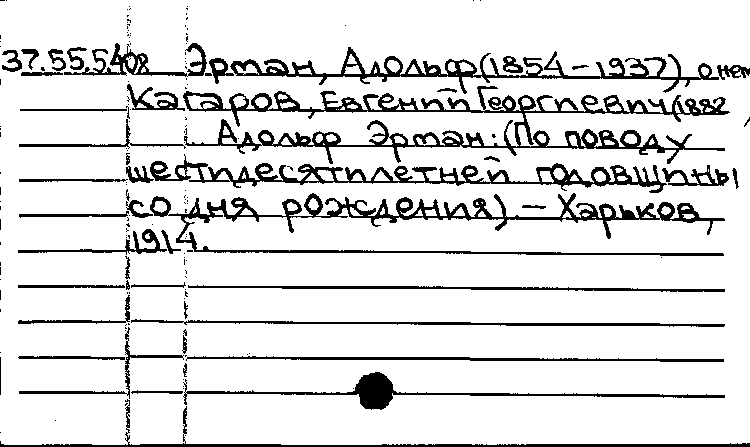 37.55.5.408 Эрман, Адольф (1854–1937), о нем
Кагаров, Евгений Георгиевич (1882
Адольф Эрман: (По поводу
шестидесятилетней годовщины
со дня рождения) – Харьков,
1914.